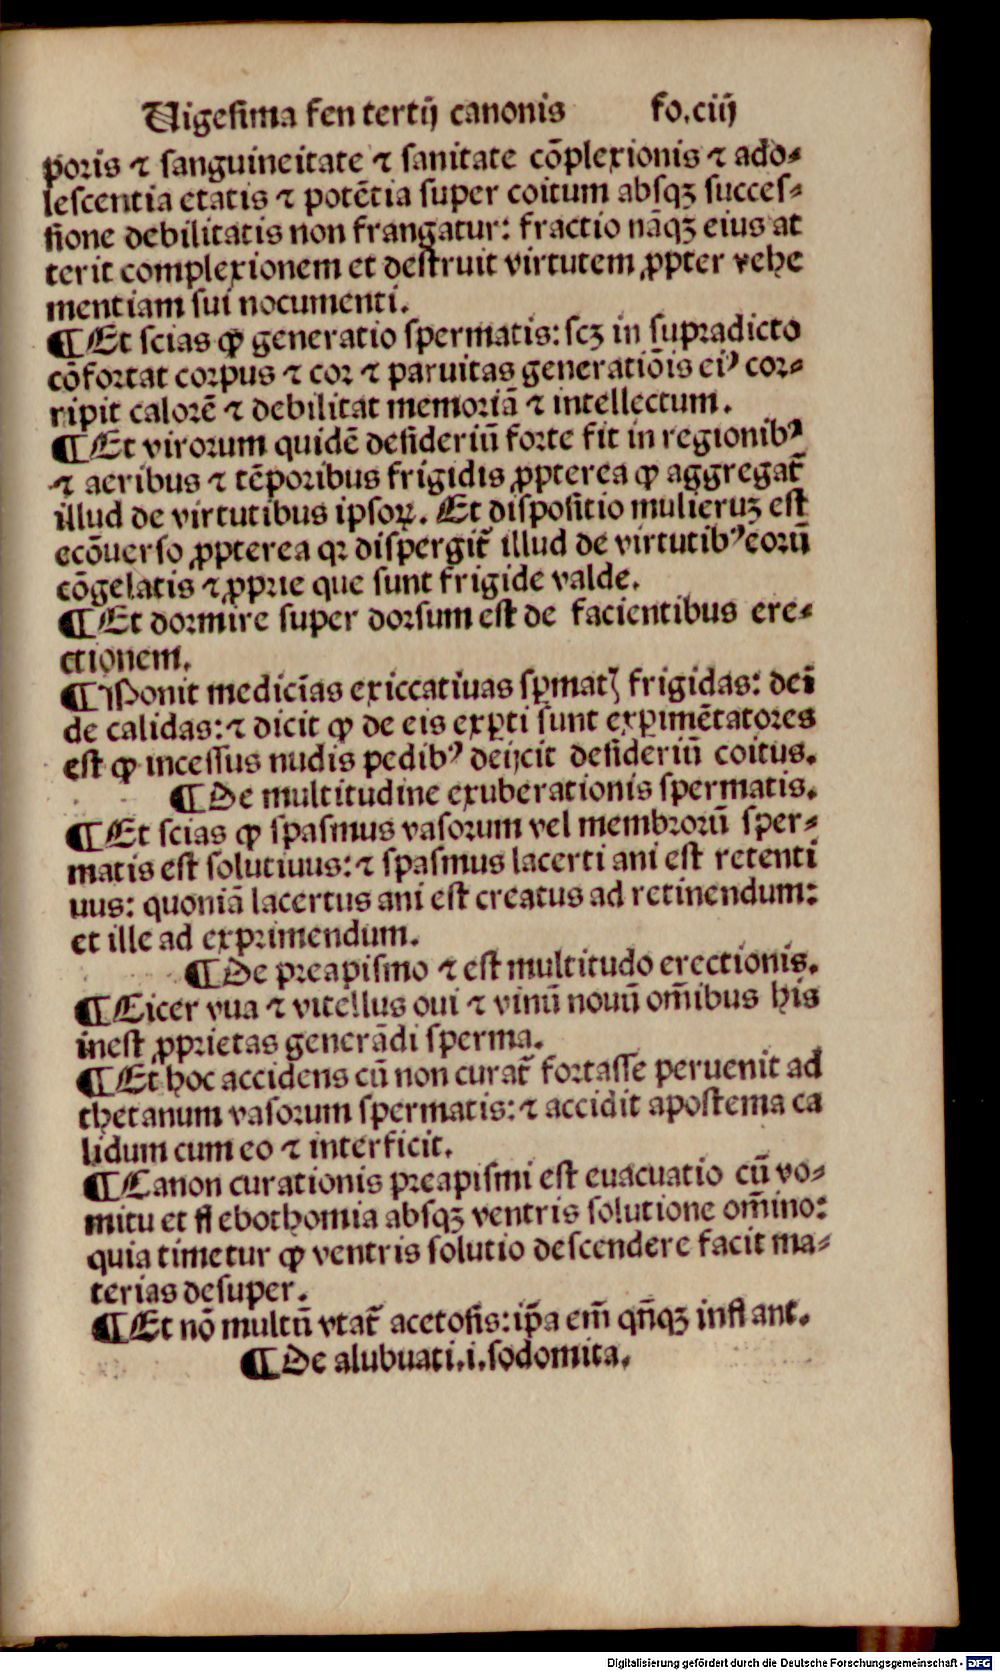 Uigesima fen tertij canonis fo.ciij
poris ⁊ sanguineitate ⁊ sanitate cõplexionis ⁊ ado⸗
lescentia etatis ⁊ potẽtia super coitum absqꝫ succes⸗
sione debilitatis non frangatur: fractio nãqꝫ eius at
terit complexionem et destruit virtutem ꝓpter vehe
mentiam sui nocumenti.
¶Et scias ꝙ generatio spermatis: scꝫ in supradicto
cõfortat corpus ⁊ cor ⁊ paruitas generatiõis eiꝰ cor⸗
ripit calorẽ ⁊ debilitat memoriã ⁊ intellectum.
¶Et virorum quidẽ desideriũ forte fit in regionibꝰ
⁊ aeribus ⁊ tẽporibus frigidis ꝓpterea ꝙ aggregat̃
illud de virtutibus ipsoꝝ. Et dispositio mulieruꝫ est
ecõuerso ꝓpterea qꝛ dispergit̃ illud de virtutibꝰ eorũ
cõgelatis ⁊ ꝓprie que sunt frigide valde.
¶Et dormire super dorsum est de facientibus ere⸗
ctionem.
¶Ponit medicĩas exiccatiuas sꝑmatꝭ frigidas: deĩ
de calidas: ⁊ dicit ꝙ de eis exꝑti sunt exꝑimẽtatores
est ꝙ incessus nudis pedibꝰ deijcit desideriũ coitus.
¶De multitudine exuberationis spermatis.
¶Et scias ꝙ spasmus vasorum vel membrorũ sper⸗
matis est solutiuus: ⁊ spasmus lacerti ani est retenti
uus: quoniã lacertus ani est creatus ad retinendum:
et ille ad exprimendum.
¶De preapismo ⁊ est multitudo erectionis.
¶Cicer vua ⁊ vitellus oui ⁊ vinũ nouũ om̃ibus his
inest ꝓprietas generãdi sperma.
¶Et hoc accidens cũ non curat̃ fortasse peruenit ad
thetanum vasorum spermatis: ⁊ accidit apostema ca
lidum cum eo ⁊ interficit.
¶Canon curationis preapismi est euacuatio cũ vo⸗
mitu et flebothomia absqꝫ ventris solutione om̃ino:
quia timetur ꝙ ventris solutio descendere facit ma⸗
terias desuper.
¶Et nõ multũ vtat̃ acetosis: ip̃a em̃ qñqꝫ inflant.
¶De alubuati.i.sodomita.
Digitalisierung gefördert durch die Deutsche Forschungsgemeinschaft - DFG